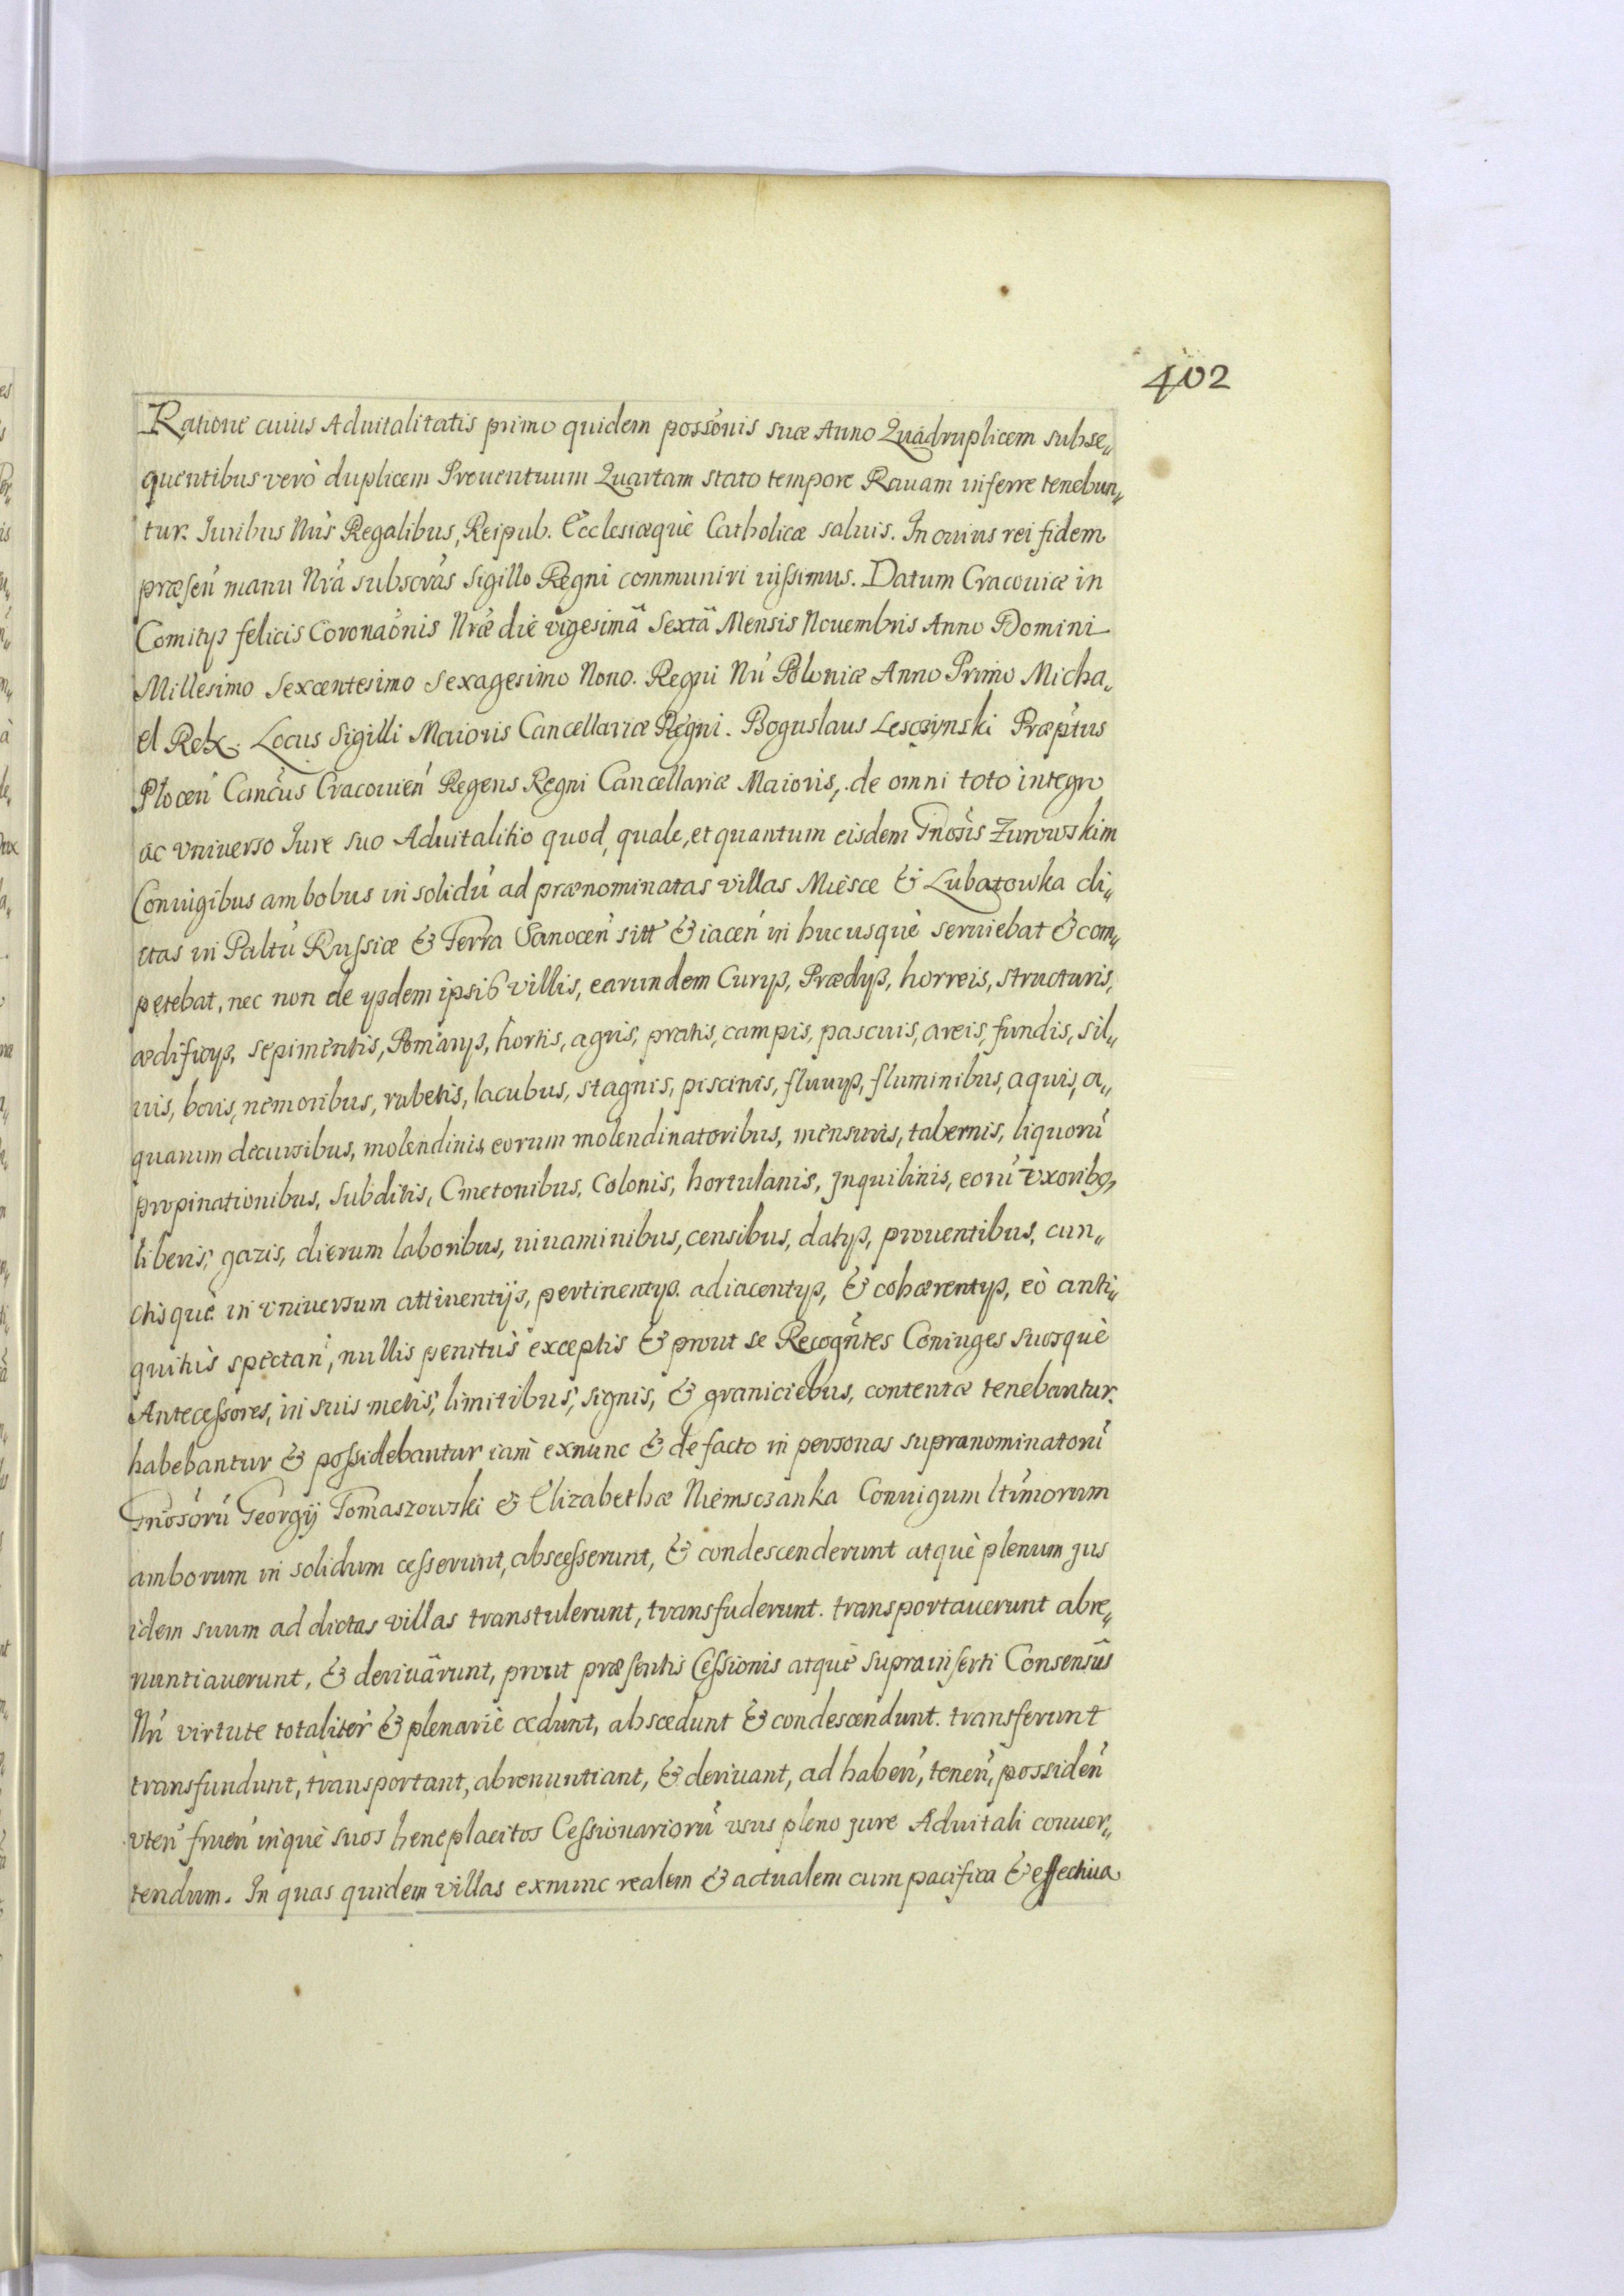 402
Ratione cuius Aduitalitatis primo quidem possōnis suæ Anno Quadruplicem subse„
quentibus verò duplicem Prouentuum Quartam stato tempore Rauam inferre tenebun„
tur. Iuribus Nrīs Regalibus, Reipub. Ecclesiæquè Catholicæ saluis. In cuius rei fidem
præsen̄ manu Nrā subscrās Sigillo Regni communiri iussimus. Datum Cracouiæ in
Comitijs felicis Coronaōnis Nræ die vigesimâ Sextâ Mensis Nouembris Anno Domini
Millesimo Sexcentesimo Sexagesimo Nono. Regni Nrī Poloniæ Anno Primo Micha„
el Rex. Locus Sigilli Maioris Cancellariæ Regni. Boguslaus Lesczynski Præptus
Plocen̄ Cancūs Cracouien̄ Regens Regni Cancellariæ Maioris, de omni toto integro
ac vniuerso Iure suo Aduitalitio quod, quale, et quantum eisdem Gnosīs Zurowskim
Coniugibus ambobus in solidū ad prænominatas villas Miesce & Lubatowka di„
ctas in Paltū Russiæ & Terra Sanocen̄ sitt & iacen̄ in hucusquè seruiebat & com„
petebat, nec non de ijsdem ipsis villis, earundem Curijs, Prædijs, horreis, structuris,
ædificijs, sepimentis, Pomarijs, hortis, agris, pratis, campis, pascuis, areis, fundis, sil„
uis, boris, nemoribus, rubetis, lacubus, stagnis, piscinis, fluuijs, fluminibus, aquis, a„
quarum decursibus, molendinis, eorum molendinatoribus, mensuris, tabernis, liquorū
propinationibus, Subditis, Cmetonibus, Colonis, hortulanis, Jnquilinis, eorū vxoribq,
liberis, gazis, dierum laboribus, iuuaminibus, censibus, datijs, prouentibus, cun„
ctisquè in vniuersum attinentijs, pertinentijs. adiacentijs, & cohærentijs, eò anti„
quitùs spectan̄, nullis penitùs exceptis & prout se Recognt̄es Coniuges suosquè
Antecessores, in suis metis, limitibus, signis, & graniciebus, contentæ tenebantur.
habebantur & possidebantur iam exnunc & de facto in personas supranominatorū
Gnosorū Georgij Tomaszowski & Elizabethæ Niemsczanka Coniugum ltīmorum
amborum in solidum cesserunt, abscesserunt, & condescenderunt atquè plenum jus
idem suum ad dictas villas transtulerunt, transfuderunt. transportauerunt abre„
nuntiauerunt, & deriuârunt, prout præsentis Cessionis atquè suprainserti Consensûs
Nrī virtute totaliter & plenariè cedunt, abscedunt & condescendunt. transferunt
transfundunt, transportant, abrenuntiant, & deriuant, ad haben̄, tenen̄, possiden̄
vten̄ fruen̄ inquè suos beneplacitos Cessionariorū vsus pleno jure Aduitali conuer„
tendum. In quas quidem villas exnunc realem & actualem cum pacifica & effectiua